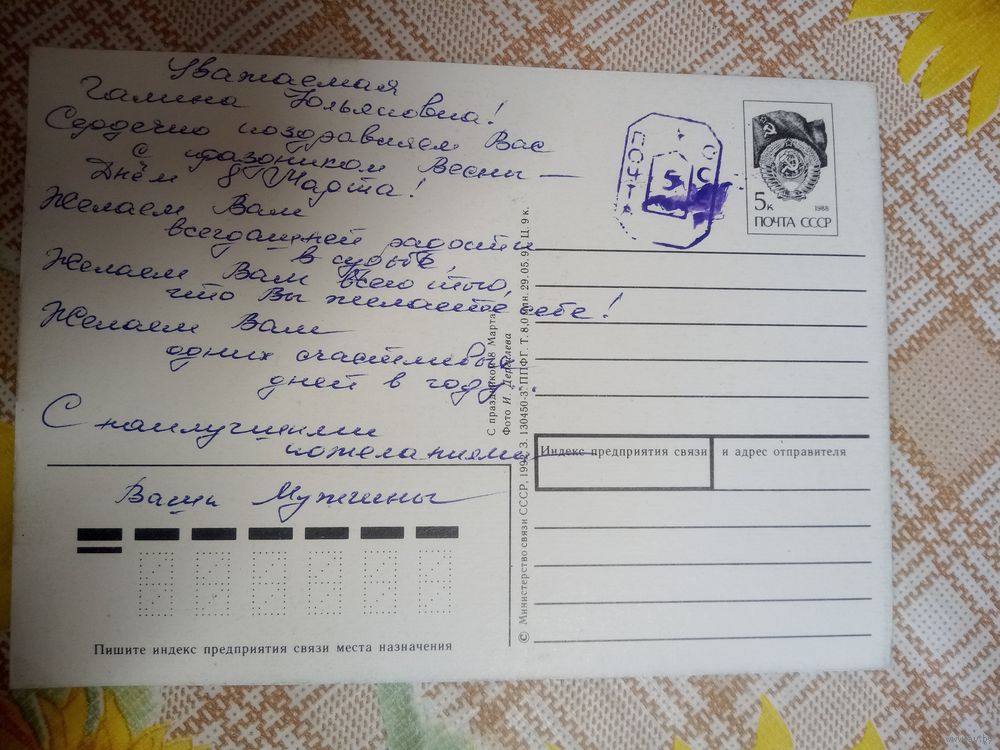 Уважаемая
Галина Ульяновна!
Сердечно поздравляем Вас
с праздником Весны —
Днём 8 Марта!
Желаем Вам
всегдашней радости
в судьбе,
Желаем Вам всего того,
что Вы желаете себе!
Желаем Вам
одних счастливых
дней в году.
С наилучшими
пожеланиями
Ваши Мужчины
Пишите индекс предприятия связи места назначения
С праздником 8 Марта
Фото И. Дергилева
© Министерство связи СССР, З. 130450-3. ППФГ. Т. 8,0 млн. 29.05. Ц. 9 к.
ПОЧТА
5
5к
1988
ПОЧТА СССР
Индекс предприятия связи и адрес отправителя